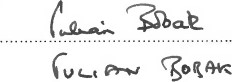 Julian Bobak
JULIAN BOBAK